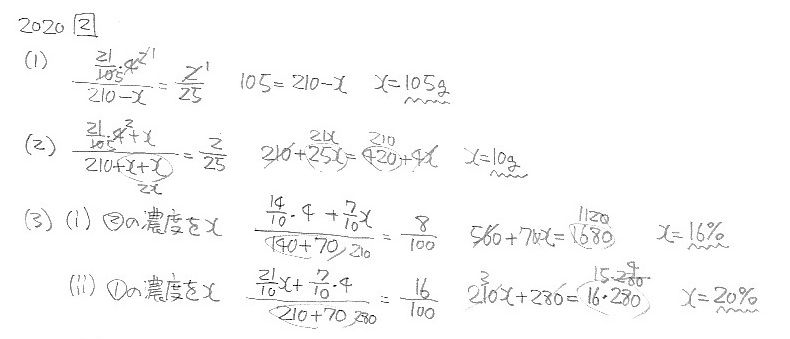 2020 [2]
(1) (21/105・4 2 1)/(210-x) = 2 1/25 105=210-x x=105g
(2) (21/105・4 2+x)/(210+x+x 2x) = 2/25 210+25x 21x=420 210+4x x=10g
(3) (i) ②の濃度をx (14/10・4+7/10x)/(140+70, 210) = 8/100 560+70x=1680 1120 x=16%
(ii) ①の濃度をx (21/10x+7/10・4)/(210+70, 280) = 16/100 210 3x+280=16・280 15・280 4 x=20%